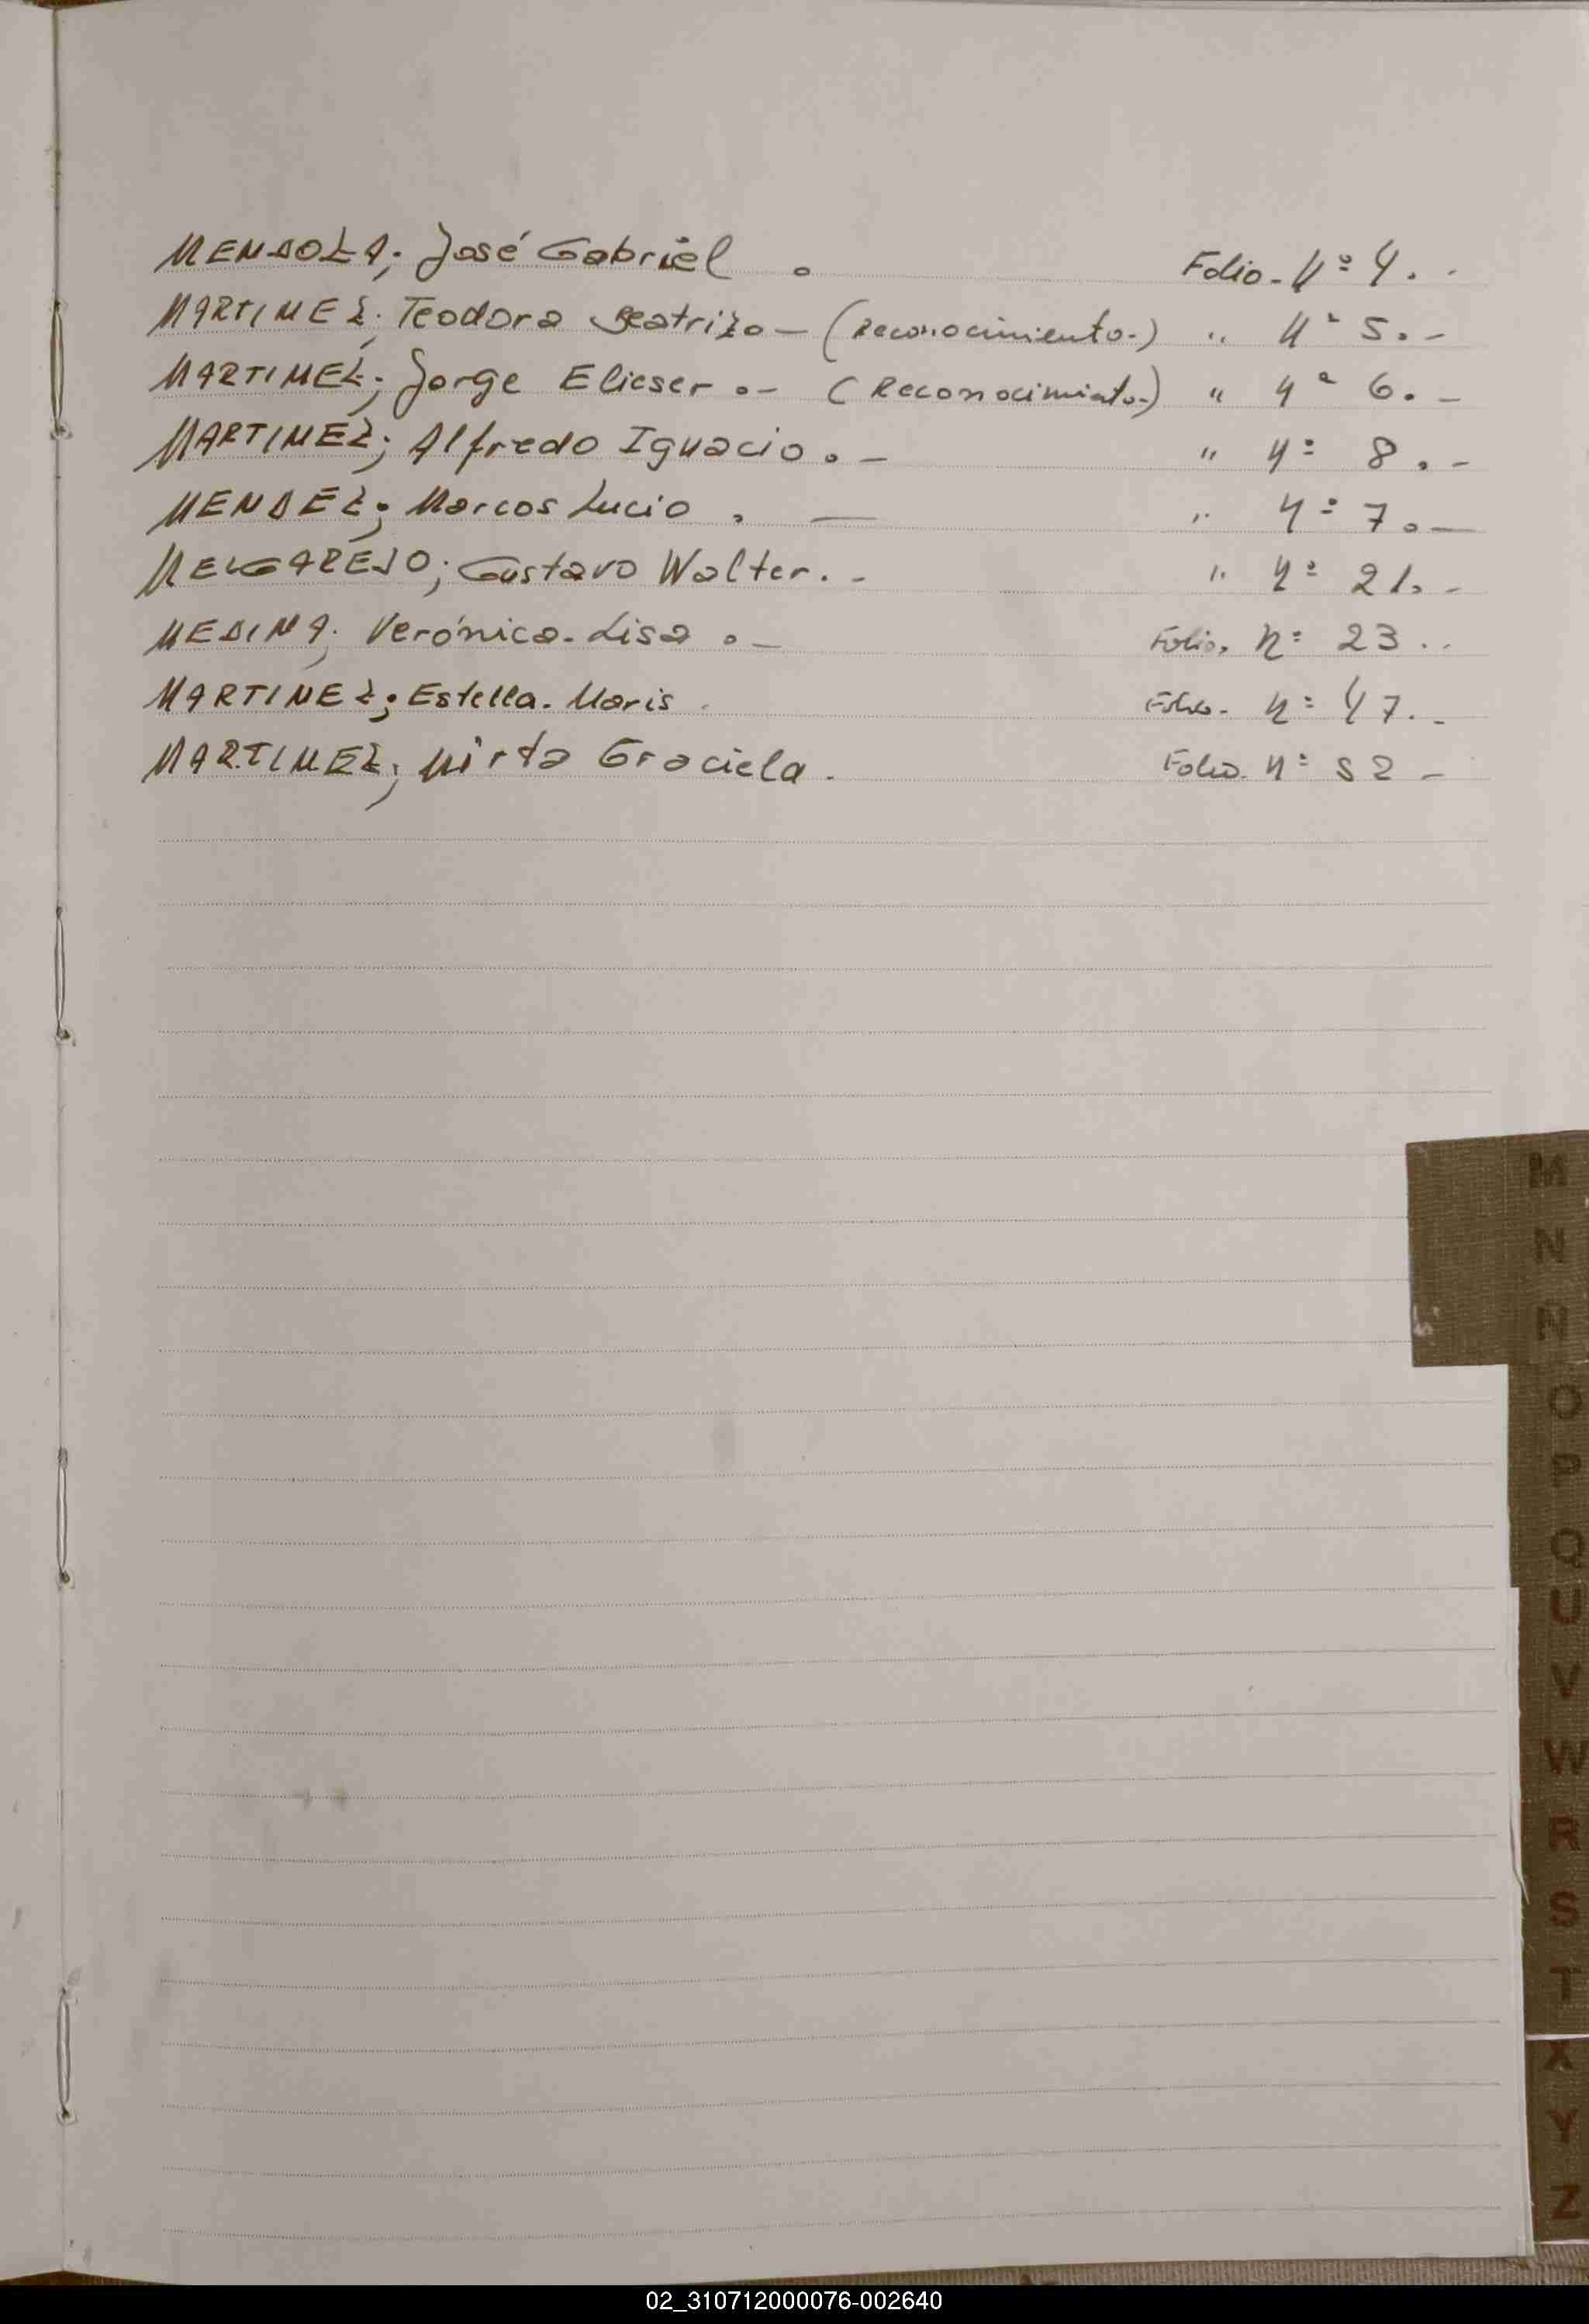 MENDOZA; José Gabriel . Folio - Nº 4. -
MARTINEZ; Teodora Beatriz. - (Reconocimiento.-) " Nº 5. -
MARTINEZ; Jorge Elieser. - (Reconocimiento.-) " Nº 6. -
MARTINEZ; Alfredo Ignacio. - " Nº 8. -
MENDEZ; Marcos Lucio . — " Nº 7. —
MELGAREJO; Gustavo Walter. - " Nº 21. -
MEDINA; Verónica - Lisa . - Folio. Nº 23 . .
MARTINEZ; Estella. Maris . Folio - Nº 47. -
MARTINEZ; Mirta Graciela . Folio. Nº 52 -
M
N
N
O
P
Q
U
V
W
R
S
T
X
Y
Z
02_310712000076-002640